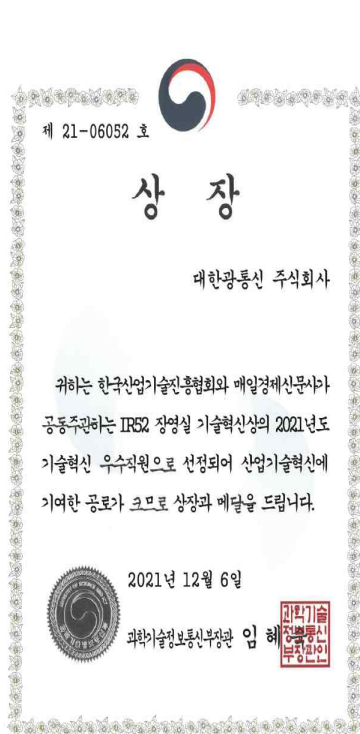 제 21-06052 호
상 장
대한광통신 주식회사
귀하는 한국산업기술진흥협회와 매일경제신문사가
공동주관하는 IR52 장영실 기술혁신상의 2021년도
기술혁신 우수직원으로 선정되어 산업기술혁신에
기여한 공로가 크므로 상장과 메달을 드립니다.
2021년 12월 6일
과학기술정보통신부장관 임 혜
과학기술
정보통신
부장관인